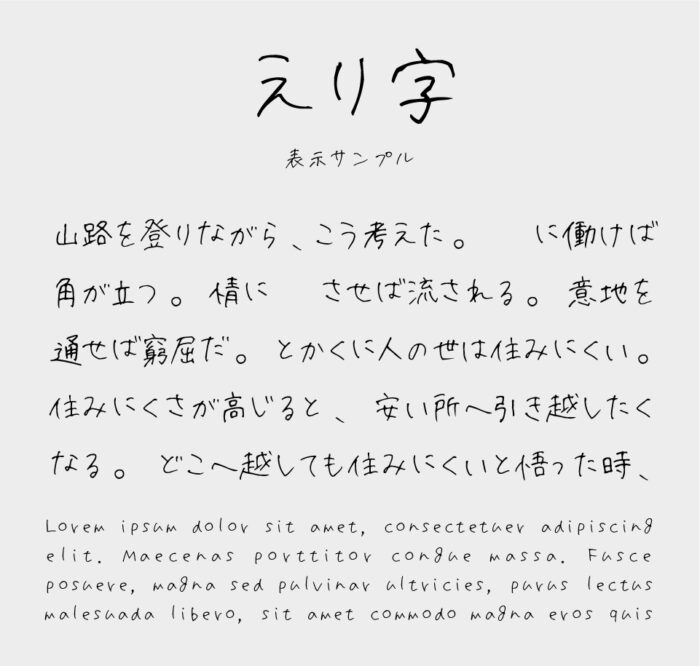 えり字
表示サンプル
山路を登りながら、こう考えた。　に働けば
角が立つ。情に　させば流される。意地を
通せば窮屈だ。とかくに人の世は住みにくい。
住みにくさが高じると、安い所へ引き越したく
なる。どこへ越しても住みにくいと悟った時、
Lorem ipsum dolor sit amet, consectetuer adipiscing
elit. Maecenas porttitor congue massa. Fusce
posuere, magna sed pulvinar ultricies, purus lectus
malesuada libero, sit amet commodo magna eros quis